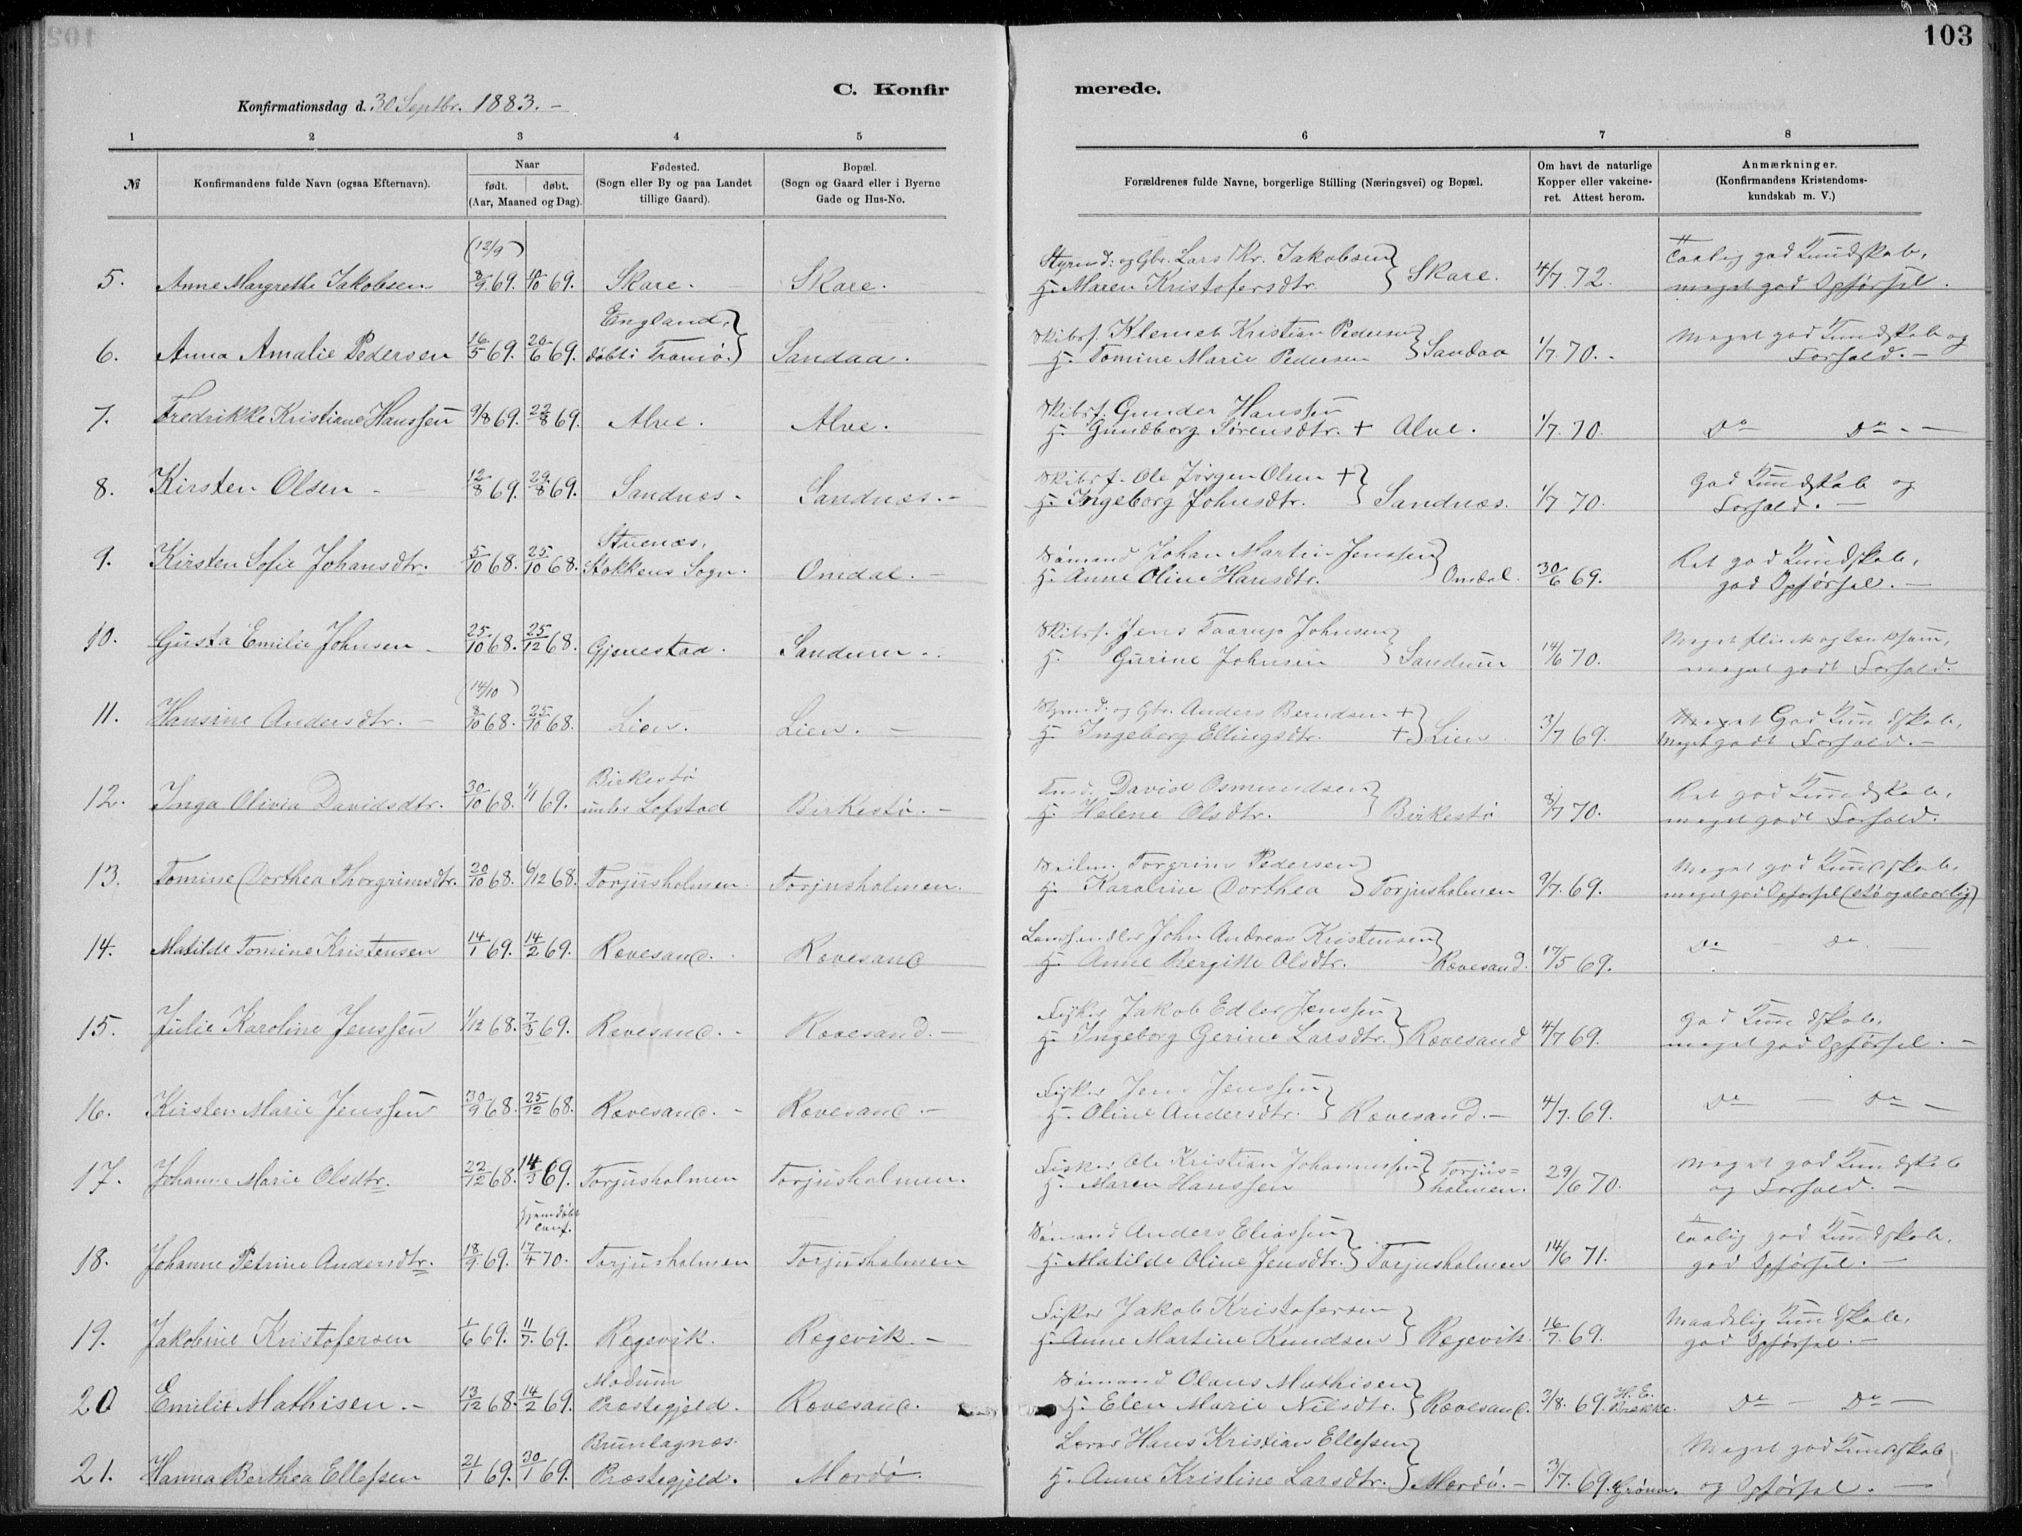 103
C. Konfir merede.
Konfirmationsdag d. 30 Septbr. 1883. -
1 2 3 4 5 6 7 8
№
Konfirmandens fulde Navn (ogsaa Efternavn).
Naar
født. døbt.
(Aar, Maaned og Dag).
Fødested.
(Sogn eller By og paa Landet
tillige Gaard).
Bopæl.
(Sogn og Gaard eller i Byerne
Gade og Hus-No.
Forældrenes fulde Navne, borgerlige Stilling (Næringsvei) og Bopæl.
Om havt de naturlige
Kopper eller vakcine-
ret. Attest herom.
Anmærkninger.
(Konfirmandens Kristendoms-
kundskab m. V.)
(12/9) Styrmd. og Gbr. Lars Kr. Jakobsen Taalig god Kundskab,
5. Anne Margrethe Jakobsen 8/9 69. 10/10 69. Skare. Skare. H. Maren Kristofersdtr. } Skare. 4/7 72. meget god Opførsel.
England, Skibsf. Klemet Kristian Pedersen Meget god Kundskab og
6. Anna Amalie Pedersen 16/5 69. 20/6 69. døbt i Tromø. } Sandaa. H. Tomine Marie Pedersen } Sandaa 1/7 70. - Forhold. -
Skibsf. Gunder Hanssen
7. Fredrikke Kristiane Hanssen 9/8 69. 22/8 69. Alve. Alve. H. Gundborg Sørensdtr. + Alve. 1/7. 70. Do Do. -
Skibsf. Ole Jørgen Olsen + God Kundskab og
8. Kirsten Olsen - 12/8 69. 29/8 69. Sandnæs. Sandnæs. - H. Ingeborg Johnsdtr. } Sandnæs. 1/7 70. Forhold. -
Stuenæs, Sømand Johan Martin Jenssen Ret god Kundskab,
9. Kirsten Sofie Johansdtr. 5/10 68. 25/10 68. Stokkens Sogn. Omdal. - H. Anne Oline Hansdtr. } Omdal. 30/6 69. god Opførsel. -
Skibsf. Jens Taarup Johnsen Meget flink og tænksom,
10. Gusta Emilie Johnsen 25/10 68. 25/12 68. Gjerestad. Sandum. H. Gurine Johnsen } Sandum 14/6 70. meget godt Forhold.
(14/10) og Gbr. Anders Berndsen + Meget God Kundskab,
11. Hansine Andersdtr. - 8/10 68. 25/10 68. Lien. Lien. - H. Ingeborg Ellingsdtr. + } Lien 3/7 69. Meget godt Forhold. -
Birkestø David Osmundsen Ret god Kundskab,
12. Inga Olivia Davidsdtr. 30/10 68. 1/1 69. under Lofstad Birkestø. - H. Helene Olsdtr. } Birkestø 8/7 70. meget godt Forhold.
Torgrim Pedersen Meget god Kundskab,
13. Tomine Dorthea Thorgrimsdtr. 20/10 68. 6/12 68. Torjusholmen. Torjusholmen. H. Karoline Dorthea } Torjusholmen 9/7. 69. meget god Opførsel (stø og alvorlig)
Landhandler John Andreas Kristensen
14. Matilde Tomine Kristensen 14/1 69. 14/2 69. Rævesand. Rævesand H. Anne Bergitte Olsdtr. } Rævesand. 17/5 69. Do Do. -
Fisker Jakob Edler Jenssen God Kundskab,
15. Julie Karoline Jenssen 1/12 68. 7/3 69. Rævesand. - Rævesand. - H. Ingeborg Gerine Larsdtr. } Rævesand 4/7 69. meget god Opførsel. -
Fisker Jens Jenssen
16. Kirsten Marie Jenssen 30/9 68. 25/12 68. Rævesand. - Rævesand. - H. Oline Andersdtr. } Rævesand. - 4/7. 69. Do - Do -
Fisker Ole Kristian Johannessen Torjus= Meget god Kundskab
17. Johanne Marie Olsdtr. 22/12 68. 14/3 69. Torjusholmen Torjusholmen. H. Maren Hanssen } holmen. 29/6 70. og Forhold. -
Hjemdøbt conf. Sømand Anders Eliassen Taalig god Kundskab,
18. Johanne Petrine Andersdtr. 18/9 69. 17/4 70. Torjusholmen Torjusholmen H. Matilde Oline Jensdtr. } Torjusholmen 14/6 71. god Opførsel. -
Fisker Jakob Kristofersen Maadelig Kundskab,
19. Jakobine Kristofersen 1/6 69. 11/7 69. Rægevik. Rægevik. - H. Anne Martine Knudsen } Rægevik. 16/7 69. god Opførsel. -
Modum Sømand Olaus Mathisen
20 Emilie Mathisen. - 13/12 68. 14/2 69. Præstegjeld. Rævesand. H. Elen Marie Nilsdtr. } Rævesand. 3/8. 69. H. E. Brække. Do - Do -
Brunlagnæs Lærer Hans Kristian Ellefsen Meget god Kundskab
21. Hanna Berthea Ellefsen 21/1 69. 30/1 69. Præstegjeld. Mærdø. H. Anne Kristine Larsdtr. } Mærdø. - 3/7. 69. og Opførsel. -